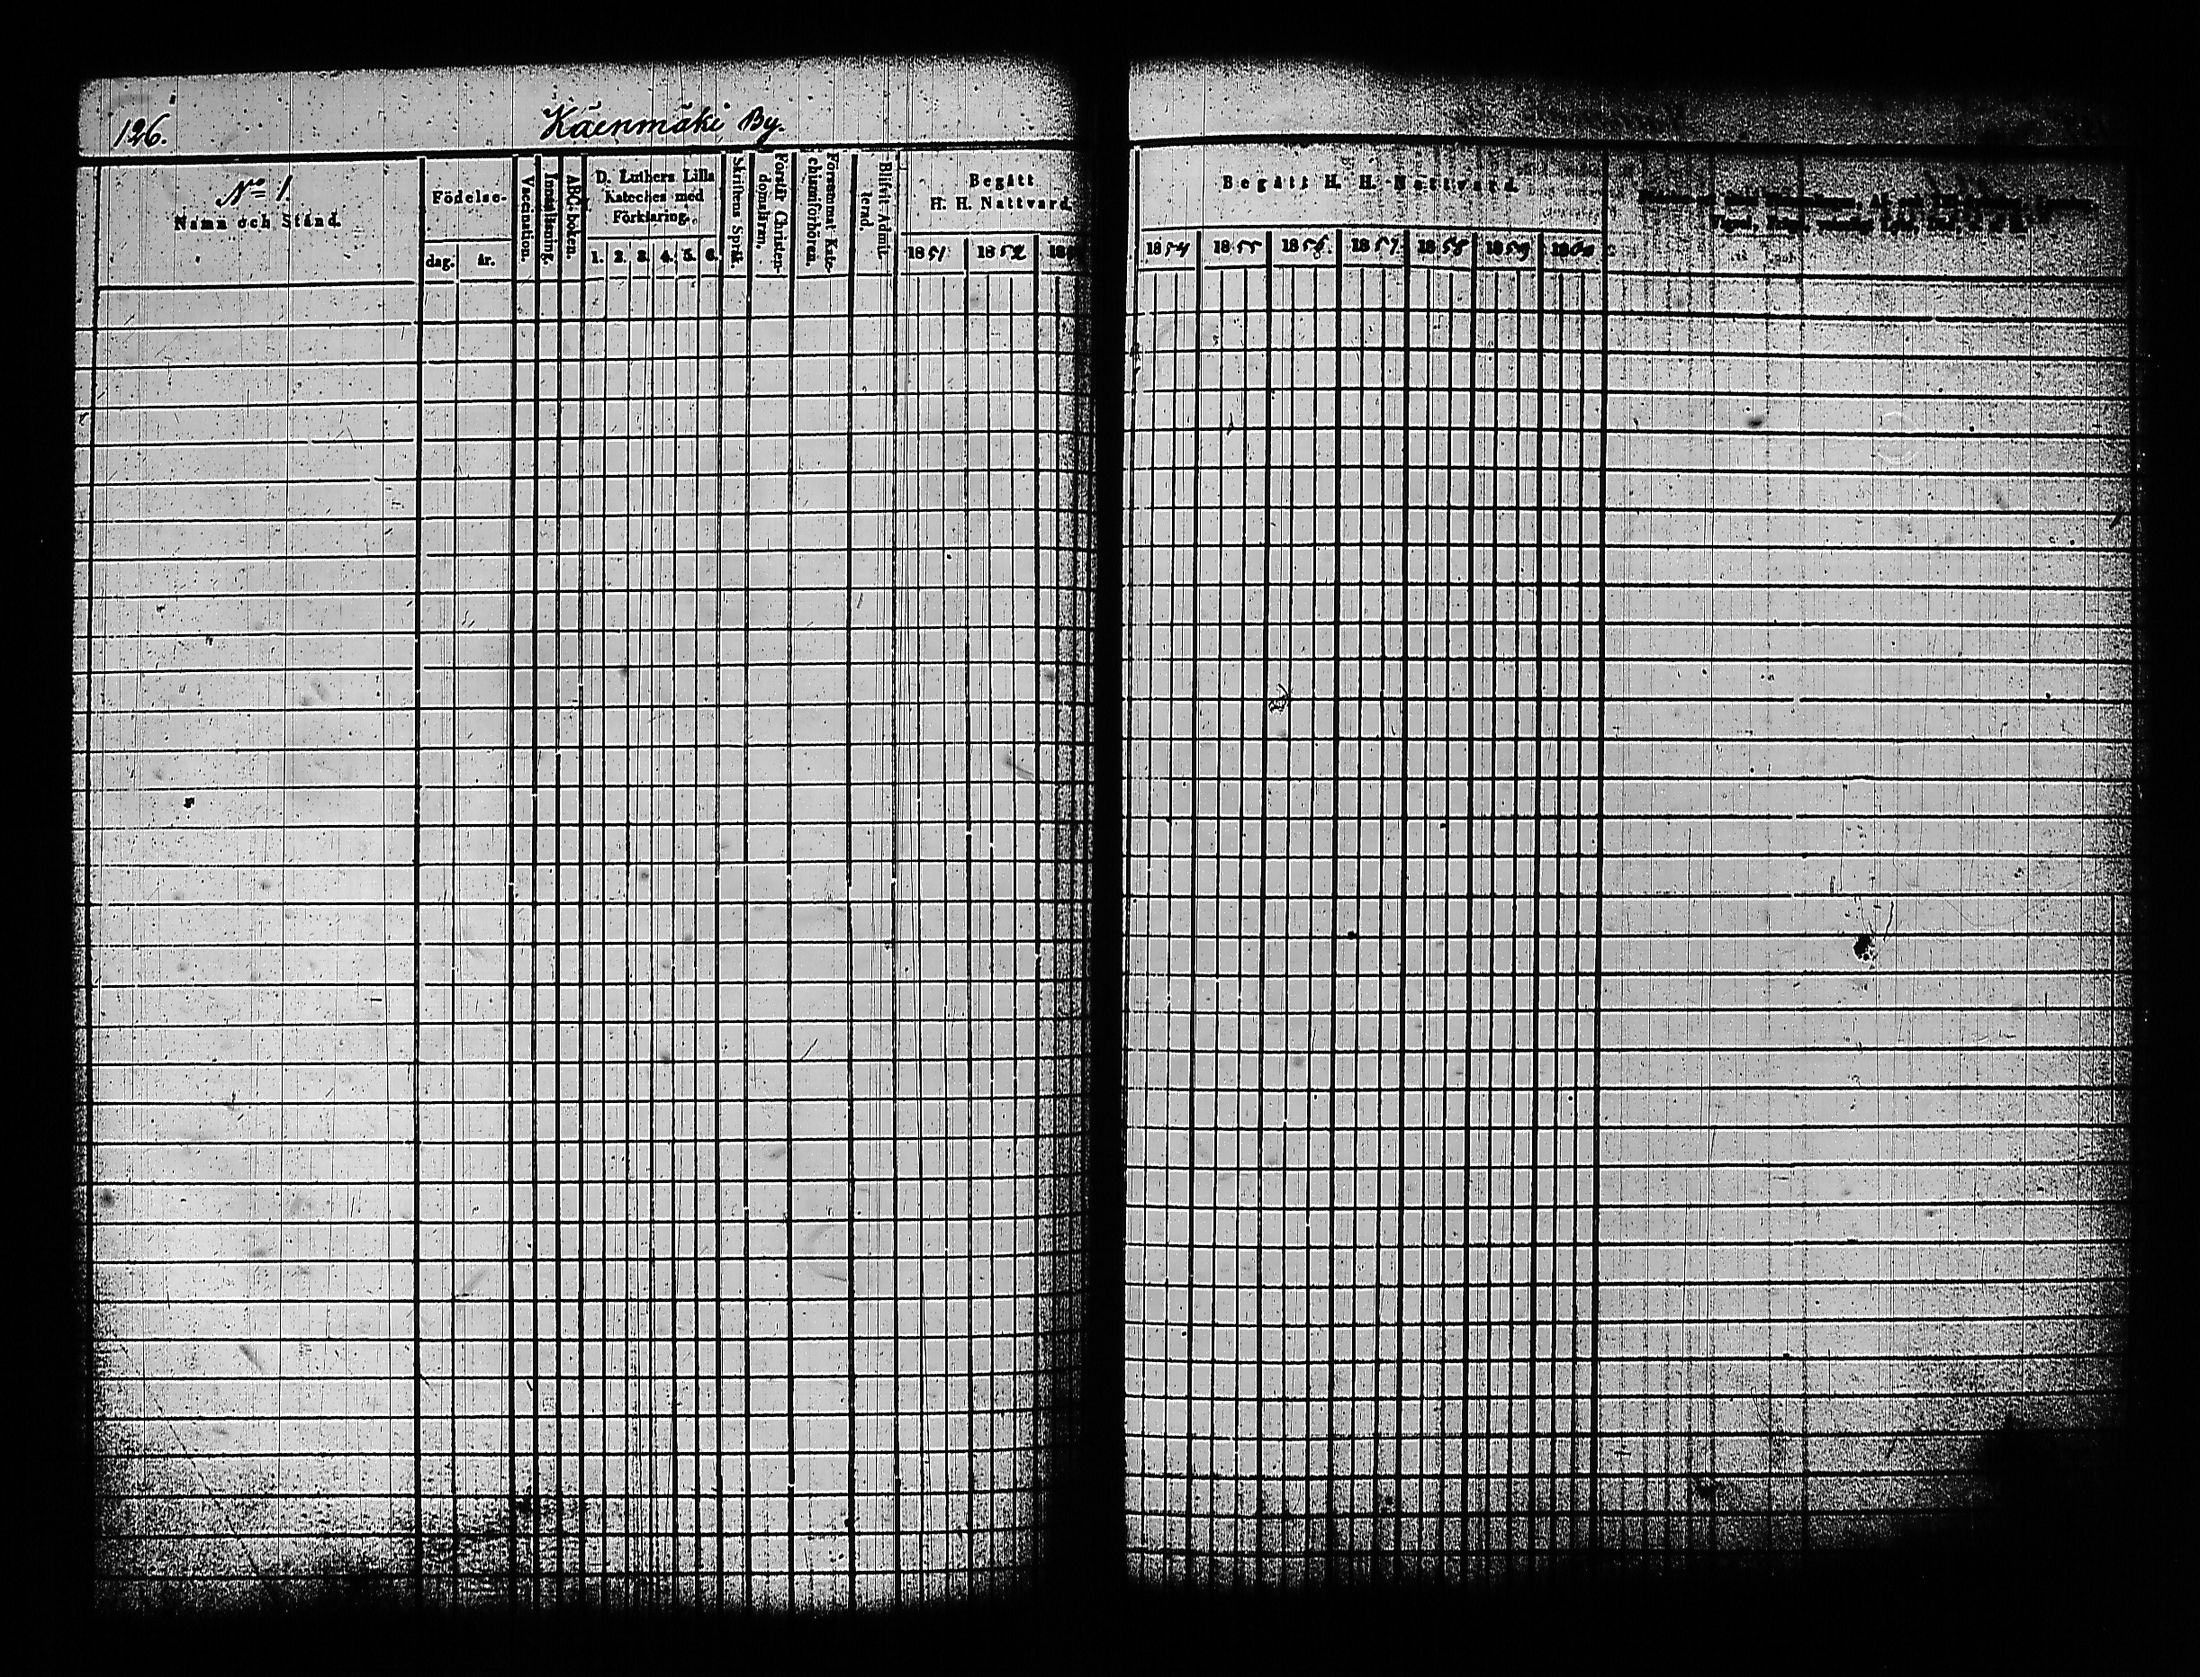 126.
Käenmäki By.
No 1.
Namn och Stånd.
Födelse-
dag.
år.
Vaccination.
Innanläsning.
ABC-boken.
D. Luthers Lilla
Kateches med
Förklaring.
1. 2. 3. 4. 5. 6.
Skriftens Språk.
Förstår Christen-
domsläran.
Försummat Kate-
chismiförhören.
Blifvit Admit-
terad.
Begått
H. H. Nattvard.
1851
1852
Begått H. H. Nattvard.
1854
1855
1856
1857
1858
1859
1860